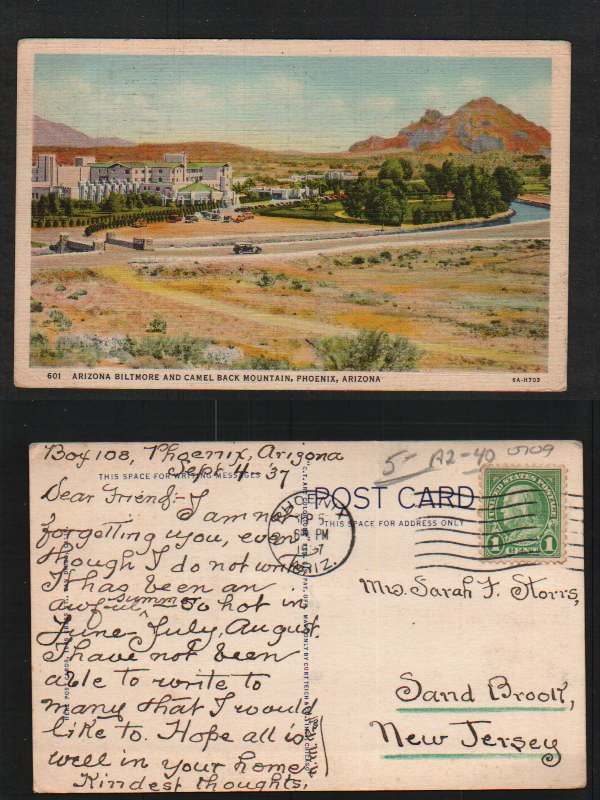 601 ARIZONA BILTMORE AND CAMEL BACK MOUNTAIN, PHOENIX, ARIZONA
6A-H703
Box 108, Phoenix, Arizona
Sept. 4-'37
THIS SPACE FOR WRITING MESSAGES
Dear Friend:- I am not
forgetting you, even
though I do not write.
It has been an
awful summer So hot in
June, July, August.
I have not been
able to write to
many that I would
like to. Hope all is
well in your home.
Kindest thoughts,
5- A2-40
POST CARD
THIS SPACE FOR ADDRESS ONLY
PHOENIX
SEP 5
6 PM
1937
ARIZ.
UNITED STATES POSTAGE
1 CENT 1
Mrs. Sarah F. Storrs,
Sand Brook,
New Jersey